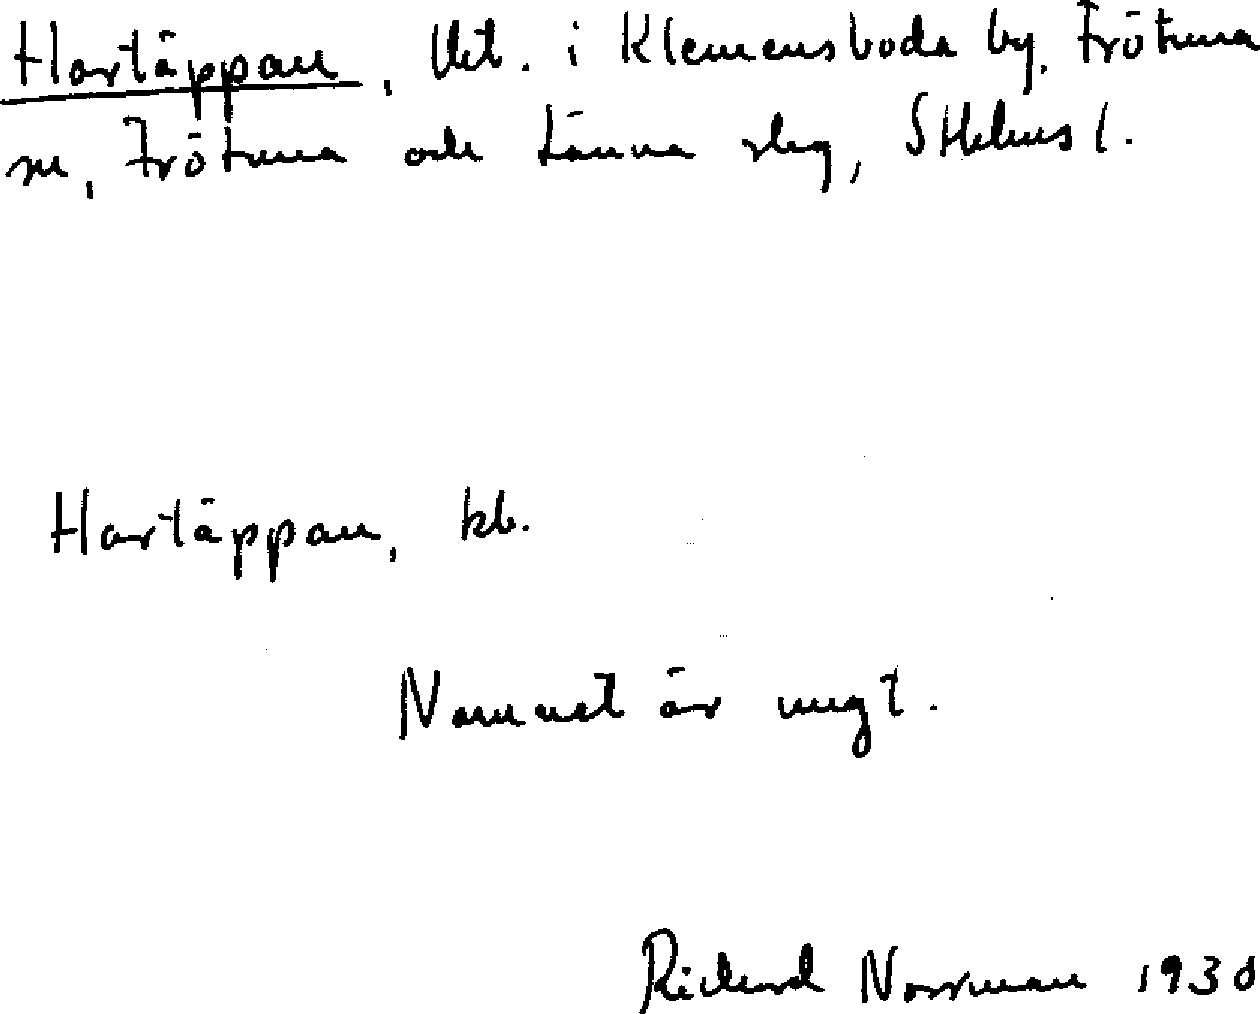 Hartäppan, Vret. i Klemensboda by, Frötuna
sn, Frötuna och Länna slag, Sthlms l.
Hartäppan, kb.
Namnet är ungt.
Richard Norrman 1930